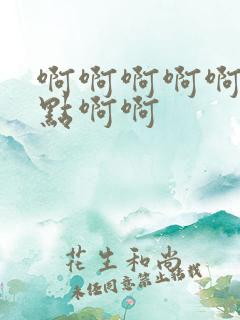 啊啊啊啊啊
點啊啊
花生和尚
未经同意禁止转载